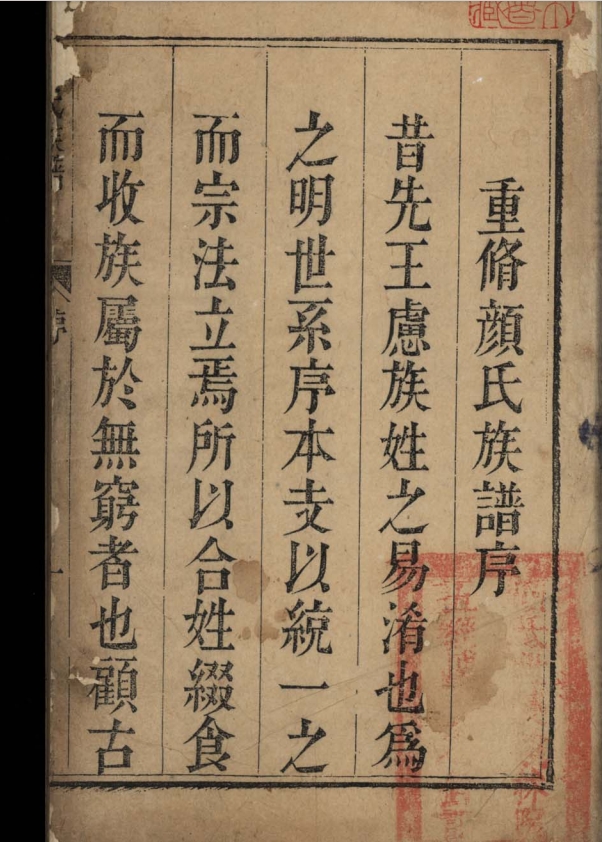 重脩顔氏族譜序
昔先王慮族姓之易淆也爲
之明世系序本支以統一之
而宗法立焉所以合姓綴食
而收族屬於無窮者也顧古
序
一